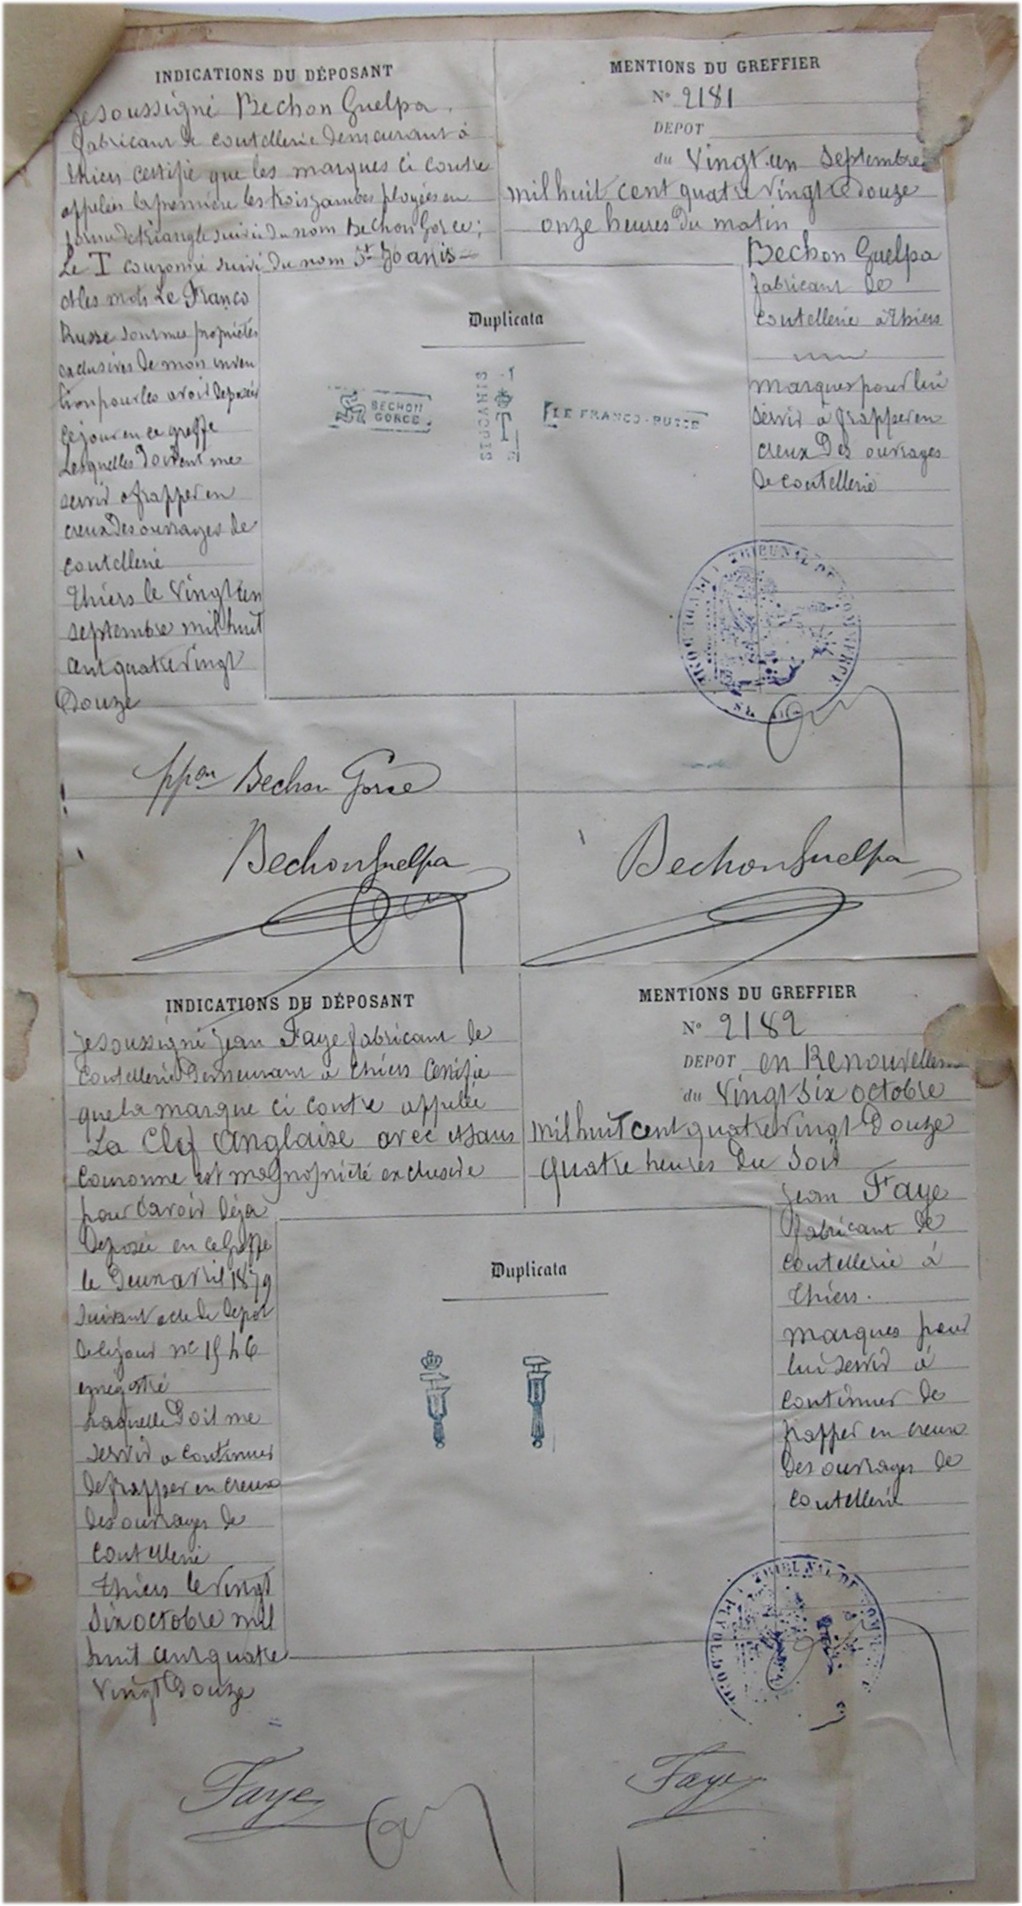 INDICATIONS DU DÉPOSANT
Je soussigné Bechon Guelpa
fabricant de coutellerie demeurant à
thiers certifie que les marques ci contre
appelées la première les trois jambes ployées en
forme de triangle suivie du nom Bechon Gorce;
Le T couronné suivi du nom
et les mots Le Franco
Russe sont mes propriétés
exclusives de mon inven
tion pour les avoir déposées
ce jour en ce greffe
Lesquelles doivent me
servir a frapper en
creux des ouvrages de
coutellerie
thiers le vingt un
septembre mil huit
cent quatre vingt
Douze
MENTIONS DU GREFFIER
No 2181
DEPOT
du Vingt un Septembre
mil huit cent quatre vingt douze
onze heures du matin
Bechon Guelpa
fabricant de
coutellerie à thiers
marques pour lui
servir à frapper en
creux des ouvrages
de coutellerie
Duplicata
BECHON
GORCE
T
LE FRANCO-RUSSE
TRIBUNAL DE COMMERCE
Bechon Gorce
Bechon Guelpa
Bechon Guelpa
INDICATIONS DU DÉPOSANT
Je soussigné Jean Faye fabricant de
coutellerie demeurant a thiers certifie
que la marque ci contre appelée
La Clef Anglaise avec et sans
couronne est ma propriété exclusive
pour l'avoir déjà
déposée en ce Greffe
le Deux avril 1879
suivant acte de dépôt
de ce jour no 1546
enregistré
Laquelle doit me
servir a continuer
de frapper en creux
des ouvrages de
coutellerie
thiers le vingt
six octobre mil
huit cent quatre
vingt Douze
MENTIONS DU GREFFIER
No 2182
DEPOT en Renouvellem
du Vingt Six octobre
mil huit cent quatre vingt Douze
quatre heures du soir
Jean Faye
fabricant de
coutellerie à
thiers.
marques pour
lui servir à
continuer de
frapper en creux
des ouvrages de
coutellerie
Duplicata
TRIBUNAL DE COMM
Faye
Faye